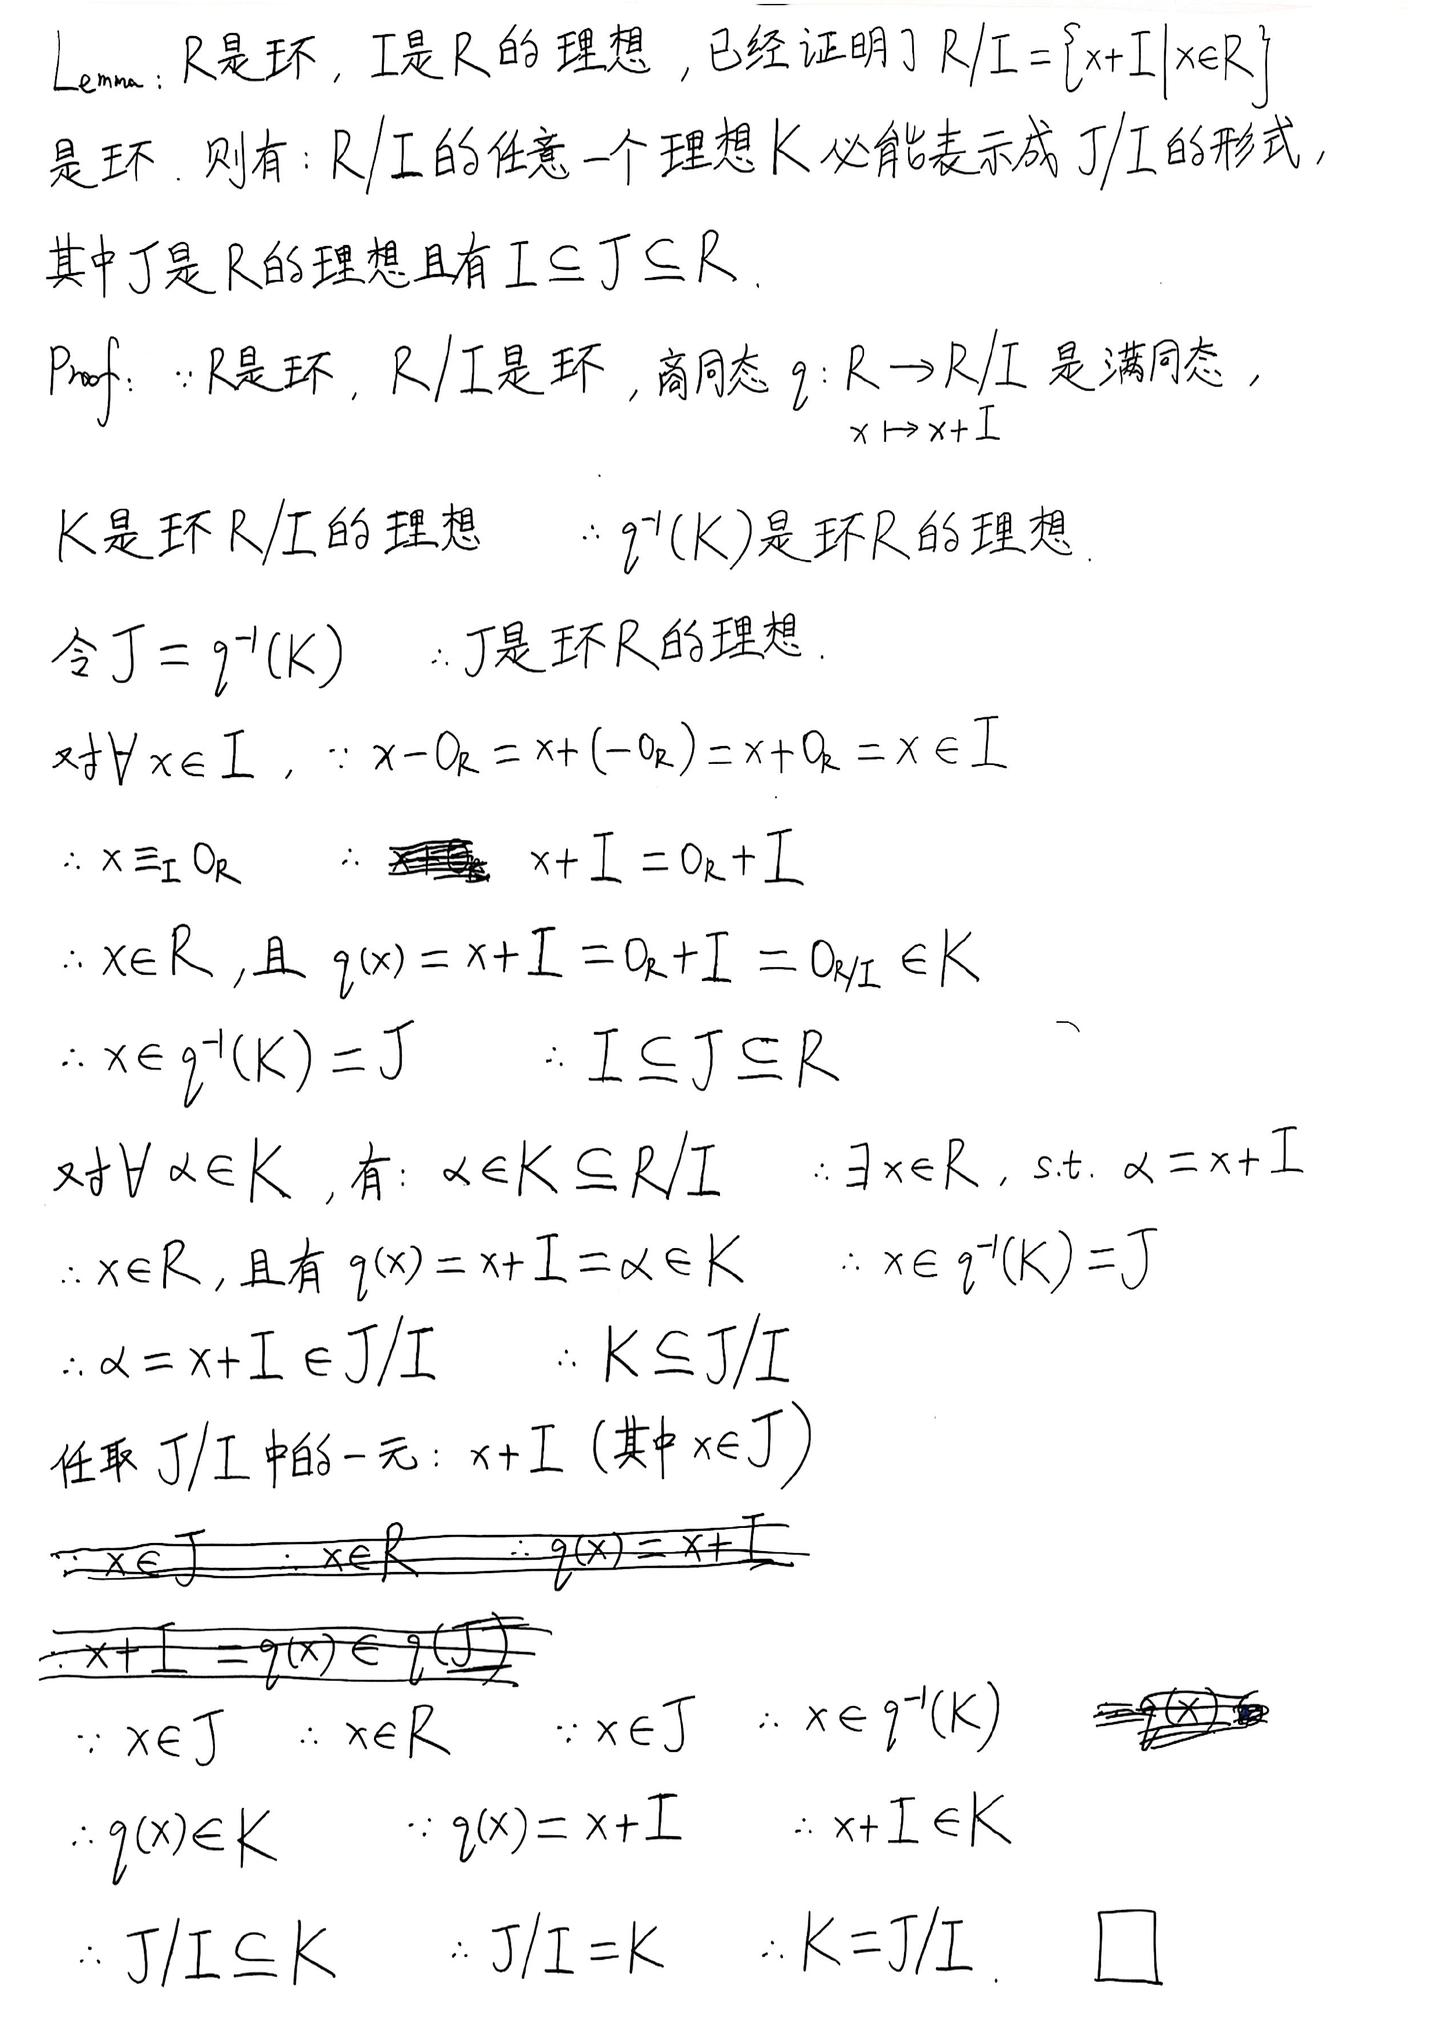 Lemma: R是环, I是R的理想, 已经证明了 R/I = {x+I | x∈R}
是环. 则有: R/I的任意一个理想K必能表示成 J/I的形式,
其中J是R的理想且有 I ⊆ J ⊆ R.
Proof: ∵ R是环, R/I是环, 商同态 q: R → R/I 是满同态,
x ↦ x+I
K是环R/I的理想 ∴ q⁻¹(K)是环R的理想.
令J = q⁻¹(K) ∴ J是环R的理想.
对∀x∈I, ∵ x-0_R = x+(-0_R) = x+0_R = x ∈ I
∴ x ≡_I 0_R ∴ x+I = 0_R+I
∴ x∈R, 且 q(x) = x+I = 0_R+I = 0_{R/I} ∈ K
∴ x∈q⁻¹(K) = J ∴ I ⊆ J ⊆ R
对∀α∈K, 有: α∈K ⊆ R/I ∴ ∃x∈R, s.t. α = x+I
∴ x∈R, 且有 q(x) = x+I = α ∈ K ∴ x∈q⁻¹(K) = J
∴ α = x+I ∈ J/I ∴ K ⊆ J/I
任取 J/I 中的一元: x+I (其中x∈J)
∵ x∈J ∴ x∈R ∴ q(x) = x+I
∴ x+I = q(x) ∈ q(J)
∵ x∈J ∴ x∈R ∵ x∈J ∴ x∈q⁻¹(K)
∴ q(x)∈K ∵ q(x) = x+I ∴ x+I ∈ K
∴ J/I ⊆ K ∴ J/I = K ∴ K = J/I. □